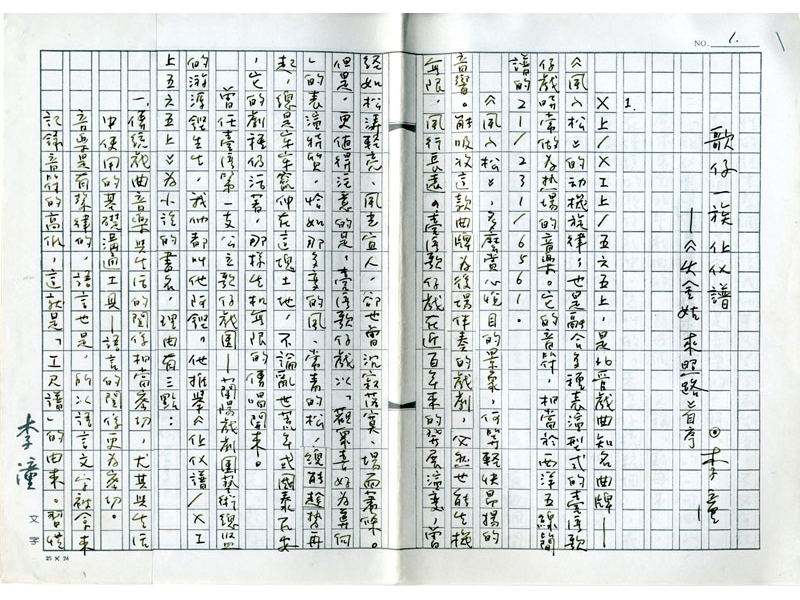 NO. 1.
歌仔一族仩伬譜
—《尖尖姑來照路》自序
⊙李潼
1.
X上/X工上/五六五上,是北管戲曲知名曲牌—
《風入松》的動機旋律,也是融合多種表演型式的臺灣歌
仔戲時常做為熱場的音樂。它的音符,相當於西洋五線簡
譜的21/231/6561。
《風入松》,多麼賞心悅目的景象,何等輕快昂揚的
音響。能吸收這款曲牌為後場伴奏的戲劇,必然也能生機
無限,風行長表。臺灣歌仔戲在近百年來的發展演變,曾
經如松濤輕亮、風光宜人,卻也曾沉寂落寞、場面蕭條。
但是,更值得注意的是,臺灣歌仔戲以「觀眾喜好為導向
」的表演特質,恰如那多變的風、常青的松,總能趁勢再
起,總是牢牢貼在這塊土地,不論亂世荒年或國泰民安
,它的劇種仍活著,那樣生機無限的傳唱開來。
曾任臺灣第一支公立歌仔戲團—蘭陽戲劇團藝術總監
的游源鏗先生,我們都叫他阿鏗,他推舉《仩伬譜/X工
上五六五上》為小說的書名,理由有三點:
一、傳統戲曲音樂與生活的關係相當密切,尤其與生活
中使用的基礎溝通工具—語言的關係更為密切。
音樂是有聲律的,語言也是,所以語言文字被拿來
記錄音符的高低,這就是「工尺譜」的由來。習慣
李潼 文字
25 X 24